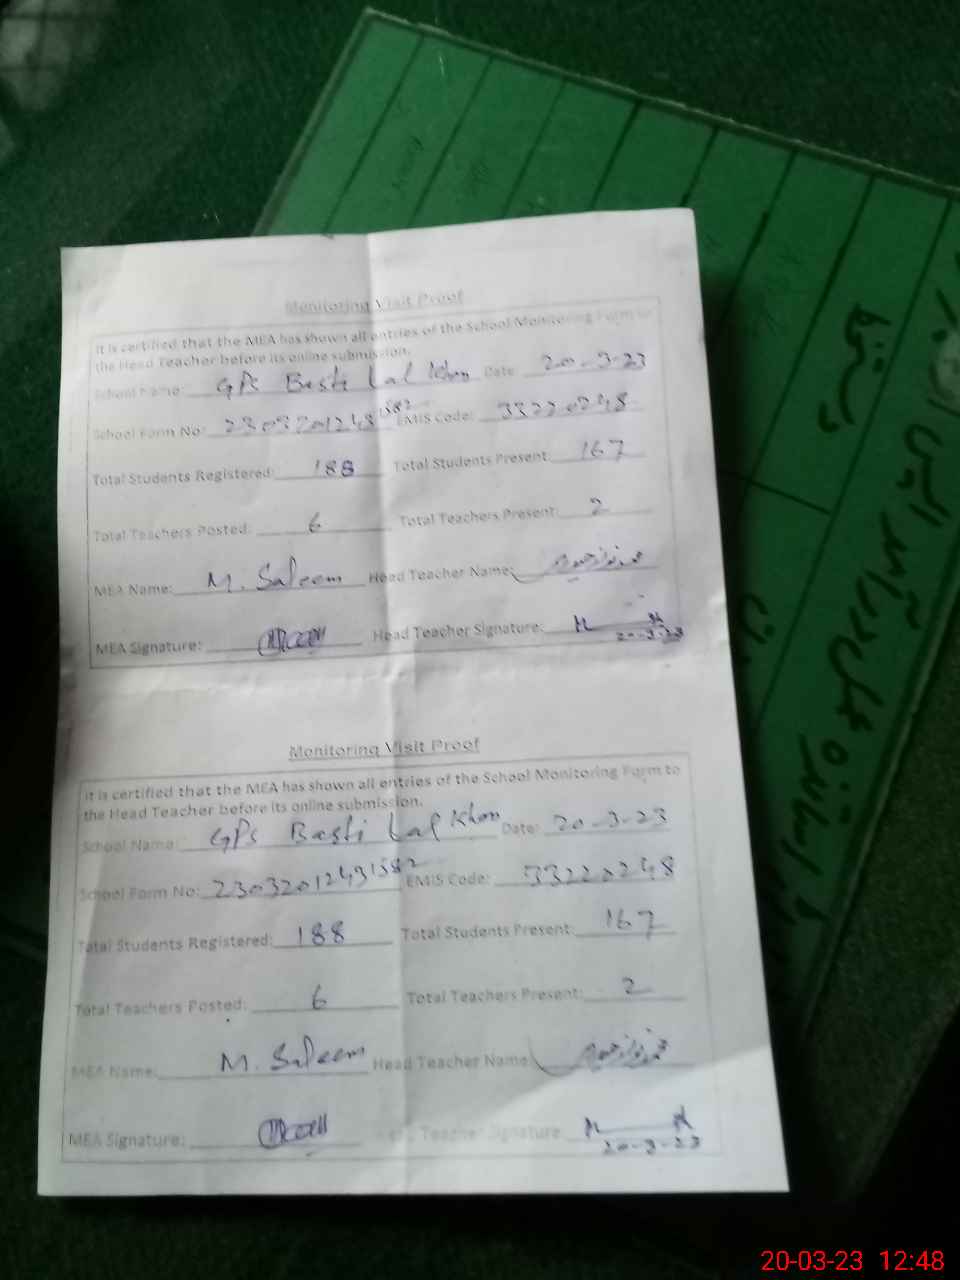 Monitoring Visit Proof
It is certified that the MEA has shown all entries of the School Monitoring Form to
the Head Teacher before its online submission.
School Name: GPS Basti Lal Khan Date 20-3-23
School Form No: 23032012431582 EMIS Code: 33220248
Total Students Registered: 188 Total Students Present: 167
Total Teachers Posted: 6 Total Teachers Present: 2
MEA Name: M. Saleem Head Teacher Name:
MEA Signature: Head Teacher Signature:
20-3-23
Monitoring Visit Proof
It is certified that the MEA has shown all entries of the School Monitoring Form to
the Head Teacher before its online submission.
School Name: GPS Basti Lal Khan Date: 20-3-23
School Form No: 23032012431582 EMIS Code: 33220248
Total Students Registered: 188 Total Students Present: 167
Total Teachers Posted: 6 Total Teachers Present: 2
MEA Name: M. Saleem Head Teacher Name:
MEA Signature: Teacher Signature
20-3-23
20-03-23 12:48